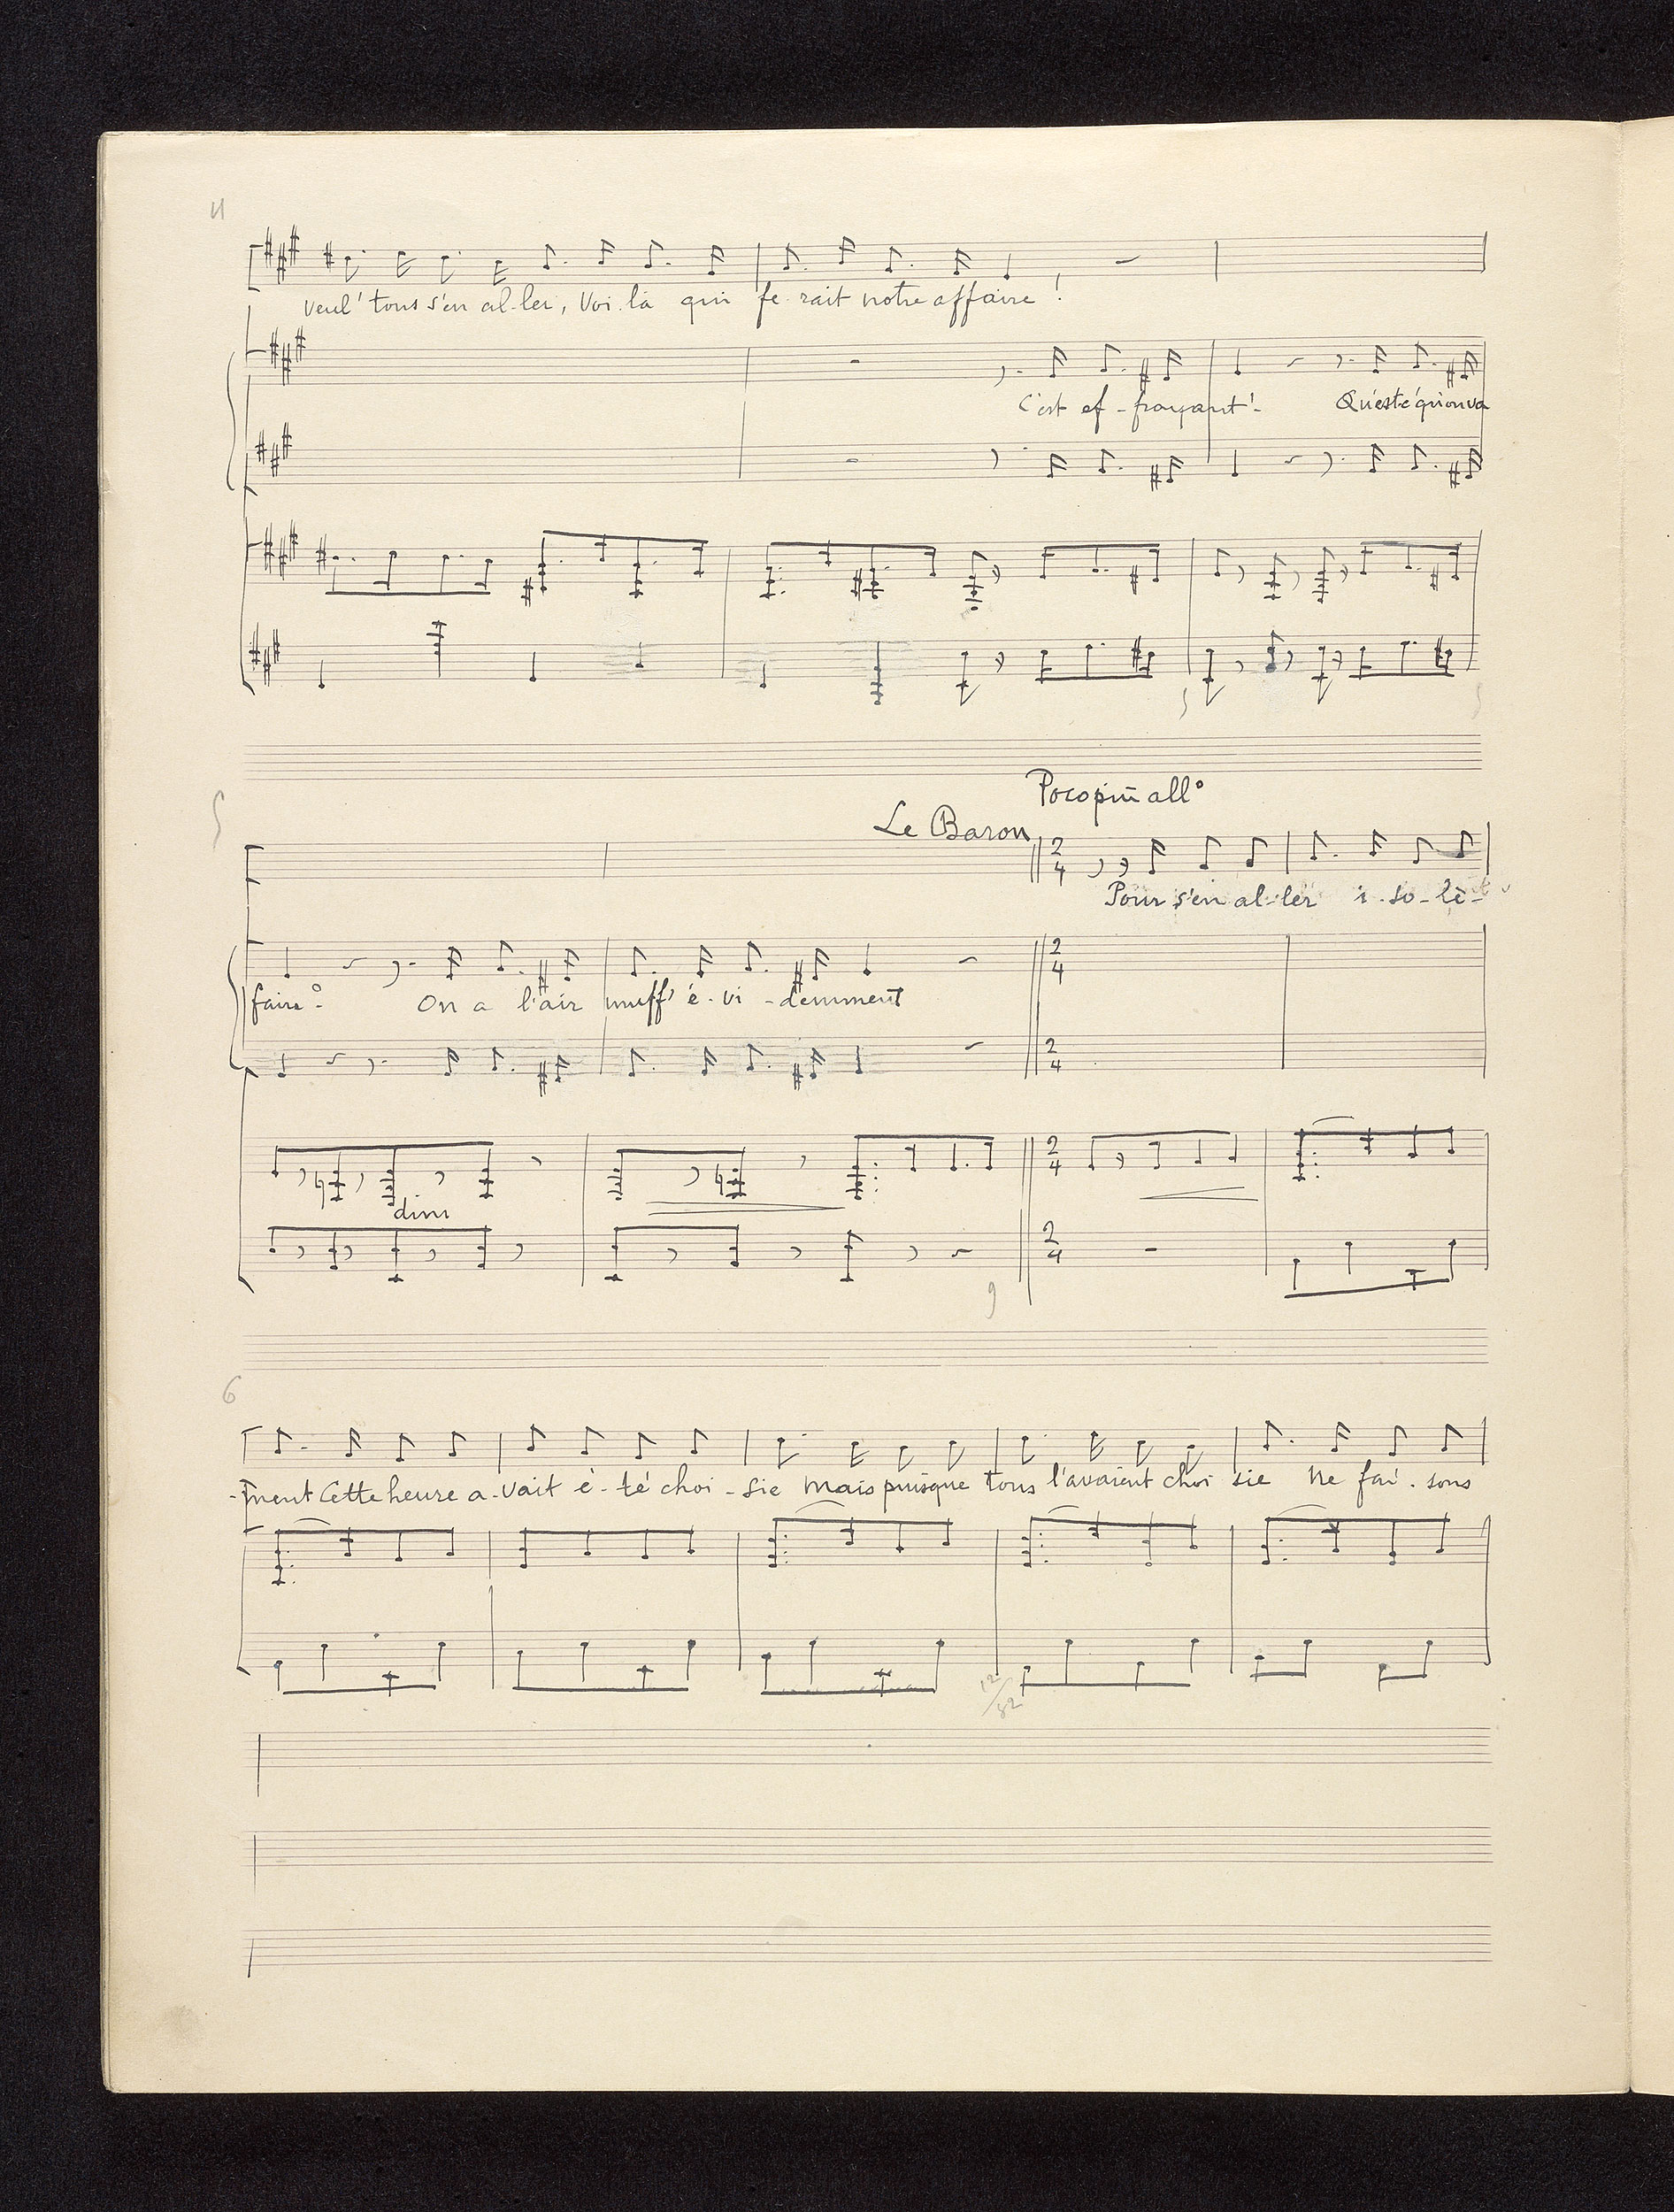 veul' tous s'en al-ler, Voi-là qui fe-rait notre affaire !
C'est ef-frayant'- Qu'est-c'qu'on va
Poco più all°
Le Baron
2/4
Pour s'en al-ler i-so-lé-
faire? On a l'air muff' é-vi-demment
2/4
2/4
2/4
dim
2/4
9
6
-ment Cette heure a-vait é-té choi-sie mais puisque tous l'avaient choi sie Ne fai-sons
12/82